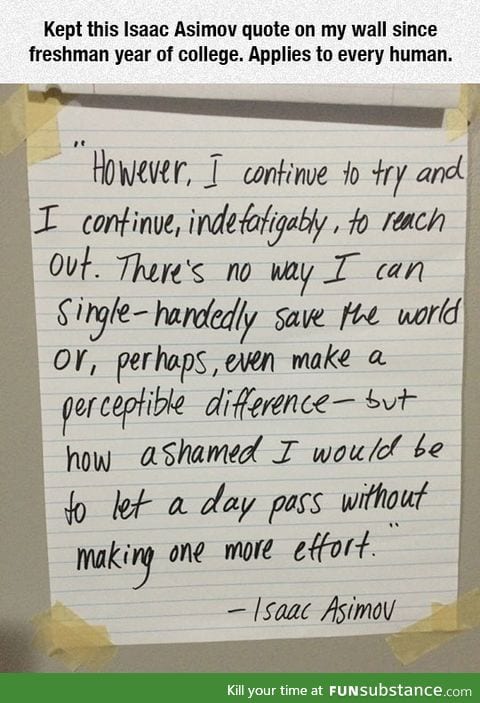 Kept this Isaac Asimov quote on my wall since
freshman year of college. Applies to every human.
"However, I continue to try and
I continue, indefatigably, to reach
out. There's no way I can
single-handedly save the world
or, perhaps, even make a
perceptible difference - but
how ashamed I would be
to let a day pass without
making one more effort."
- Isaac Asimov
Kill your time at FUNsubstance.com